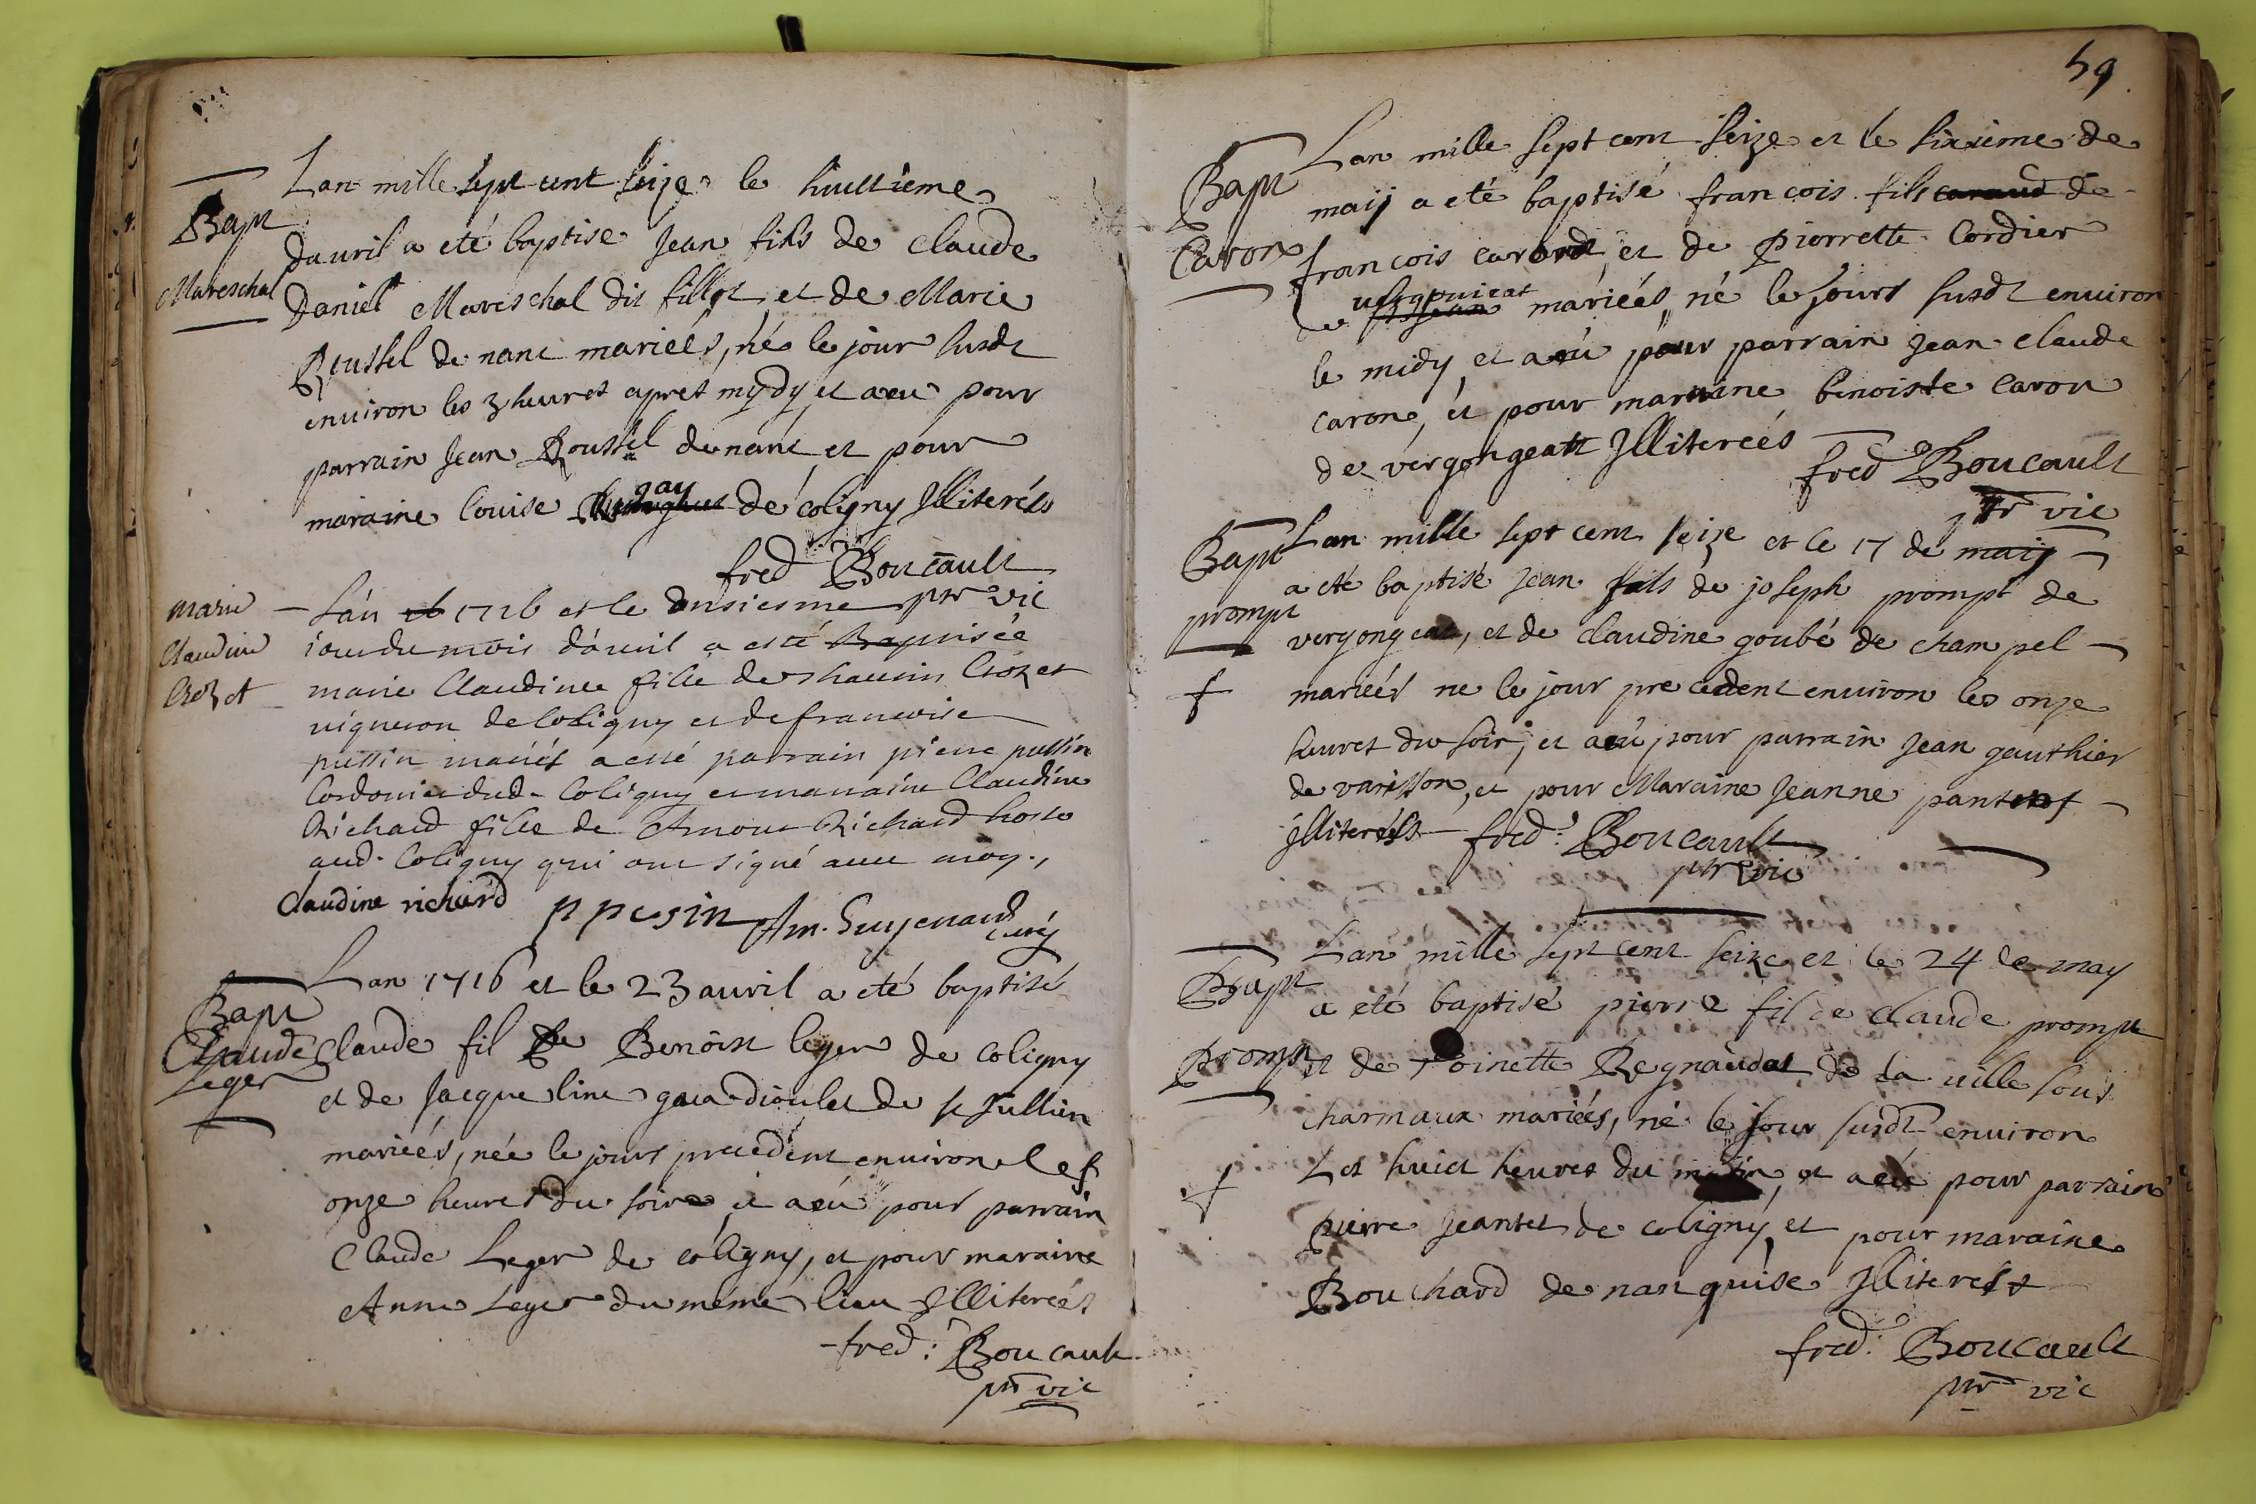 Bapt
Mareschal
Lan mille sept cent seize le huittieme
dauril a eté baptise Jean fils de Claude
Daniel Mareschal dit fillot et de Marie
Roussel de nanc mariées, né le jour susdt
enuiron les 3 heures apres mydy et a eu pour
parrain Jean Roussel de nanc et pour
maraine Louise de coligny Illiterés
fred Boucault
ptr vic
marie
Claudine
Crozet
Lan 1716 et le onsiesme
iour du mois dauril a esté Baptisée
marie Claudine fille de Crozet
uigneron de Coligny et de francoise
pussin mariés a esté parrain pierre pussin
Cordonier dud. Coligny et marraine Claudine
Richard fille de Amour Richard hoste
aud. Coligny qui ont signé auec moy.,
Claudine richard p pesin Am. Guyenard
curé
Bapt
Claude
Leger
Lan 1716 et le 23 auvril a eté baptisé
Claude fil de Benoist leger de coligny
et de Jacqueline de st Jullien
mariées, née le jours precedent enuiron les
onze heures du soir, et a eú pour parrain
Claude Leger de coligny, et pour maraine
Anne Leger du méme lieu Illiterées
fred: Boucault
ptr vic
59
Bapt
Caron
Lan mille sept cent seize et le sixieme de
maij a eté baptisé francois fils caraud de
francois carond et de Pierrette Cordier
de mariées, né le jours susdt enuiron
le midy, et a eú pour parrain Jean Claude
caron, et pour maraine benoiste caron
de vergongeatt Illiterées
fred Boucault
ptr vic
Bapt
prompt
Lan mille sept cent seize et le 17 de maij
a eté baptisé Jean fils de joseph prompt de
vergongeat, et de Claudine goubé de champel
mariées ne le jour precedent enuiron les onze
heures du soir, et a eú pour parrain Jean gauthier
de varisson, et pour Maraine Jeanne
illiterées fred: Boucault
ptr vic
Bapt
Prompt
Lan mille sept cent seize et le 24 de may
a eté baptisé pierre fil de Claude prompt
et de Toinette Regnaudat de la uille sous
charmaux mariées, né le jour susdt enuiron
Les huict heures du matin, et a eú pour parrain
pierre Jeantet de coligny, et pour maraine
Bouchard de nanquise Illiterés
fred: Boucault
ptr vic